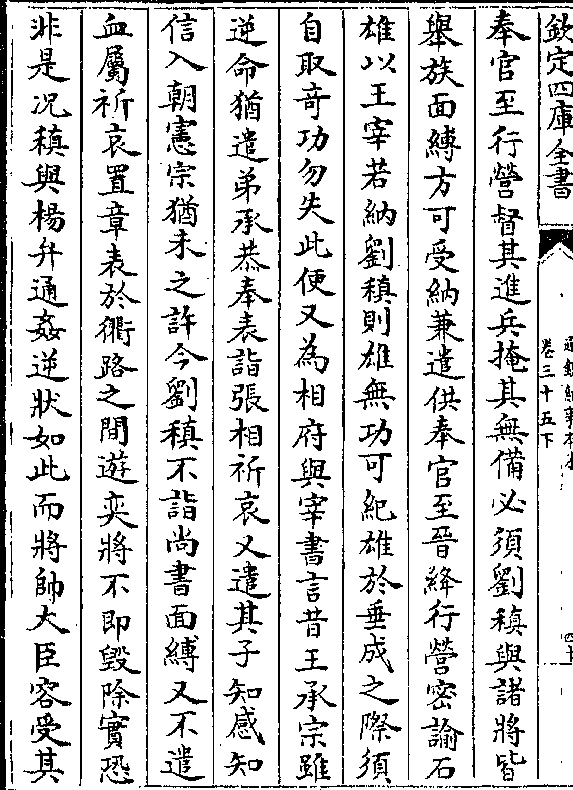 欽定四庫全書
通鑑紀事本末
卷三十五下
四十
奉官至行營督其進兵掩其無備必須劉稹與諸將皆
舉族面縛方可受納兼遣供奉官至晉絳行營密諭石
雄以王宰若納劉稹則雄無功可紀雄於垂成之際須
自取竒功勿失此便又為相府與宰書言昔王承宗雖
逆命猶遣弟承恭奉表詣張相祈哀又遣其子知感知
信入朝憲宗猶未之許今劉稹不詣尚書面縛又不遣
血屬祈哀置章表於衢路之間遊奕將不即毀除實恐
非是况稹與楊弁通姦逆狀如此而將帥大臣容受其